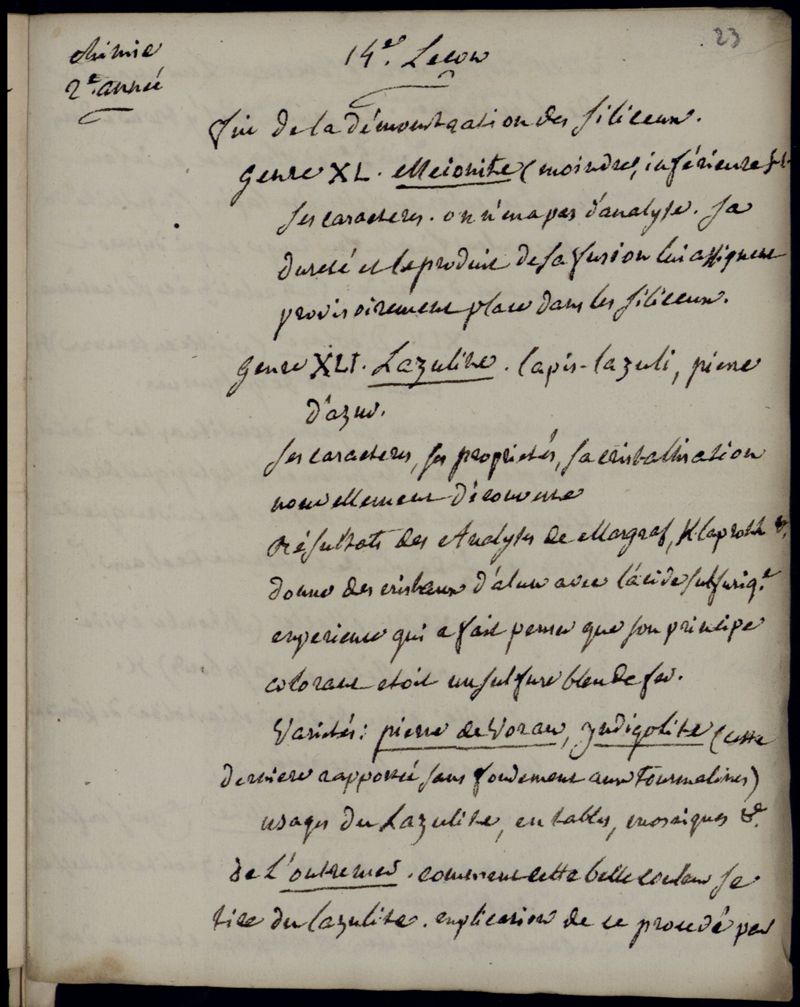 23
chimie
2.e année
14.e Lecon
fin de la démonstration des siliceux.
genre XL. Meionite (moindre, inférieure)
ses caracteres. on n'en a pas d'analyse. sa
dureté et le produit de sa fusion lui assignent
provisoirement place dans les siliceux.
genre XLI. Lazulite. lapis-lazuli, pierre
d'azur.
ses caracteres, ses propriétés, sa cristallisation
nouvellement découverte
Résultats des Analyses de Margraf, Klaproth &.
donne des cristaux d'alun avec l'acide sulfuriq.e
experience qui a fait penser que son principe
colorant etoit un sulfure bleu de fer.
Variétés: pierre de Voraw, indigolite (cette
derniere rapportée sans fondement aux Tourmalines)
usages du Lazulite, en tables, mosaiques &.
de L'outremer. comment cette belle couleur se
tire du lazulite. explication de ce procedé par